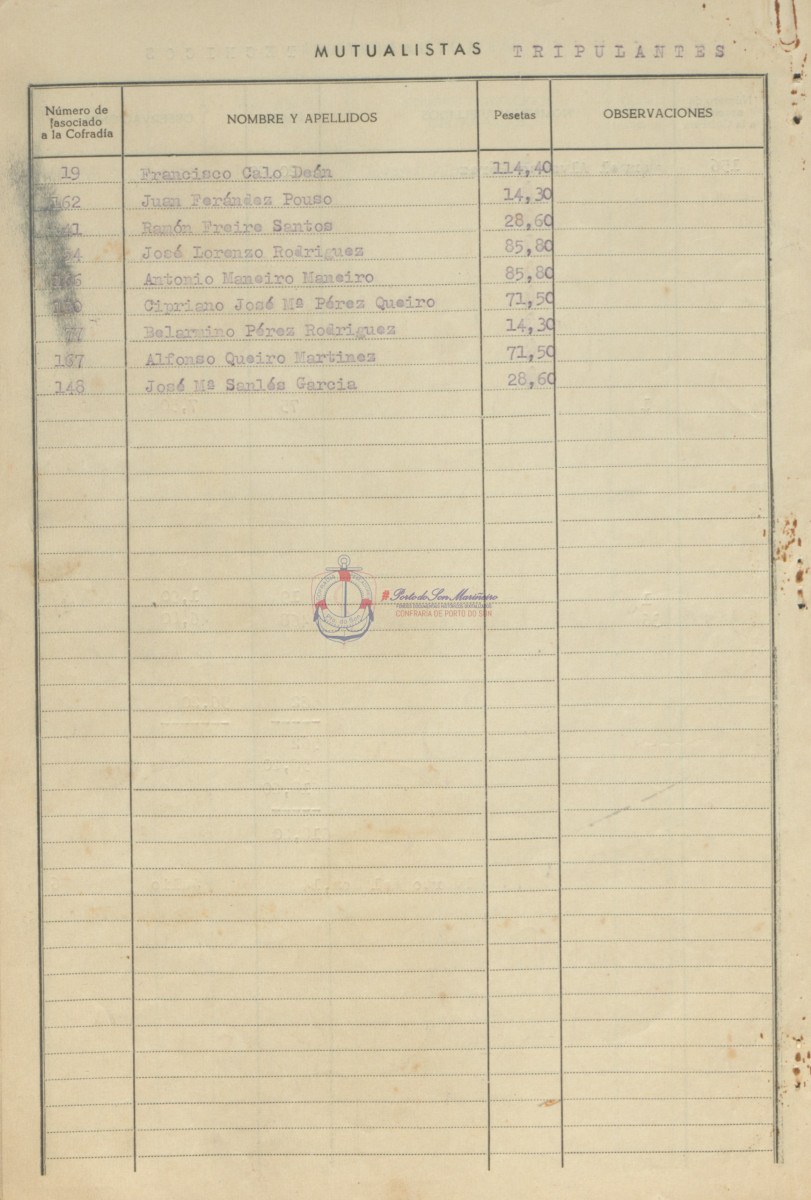 MUTUALISTAS TRIPULANTES
Número de
fasociado
a la Cofradía
NOMBRE Y APELLIDOS
Pesetas
OBSERVACIONES
19 Francisco Calo Deán 114,40
162 Juan Ferández Pouso 14,30
41 Ramón Freire Santos 28,60
José Lorenzo Rodriguez 85,80
Antonio Maneiro Maneiro 85,80
Cipriano José Mª Pérez Queiro 71,50
77 Belarmino Pérez Rodriguez 14,30
167 Alfonso Queiro Martinez 71,50
148 José Mª Sanlés Garcia 28,60
Porto do Son Mariñeiro
CONFRARIA DE PORTO DO SON